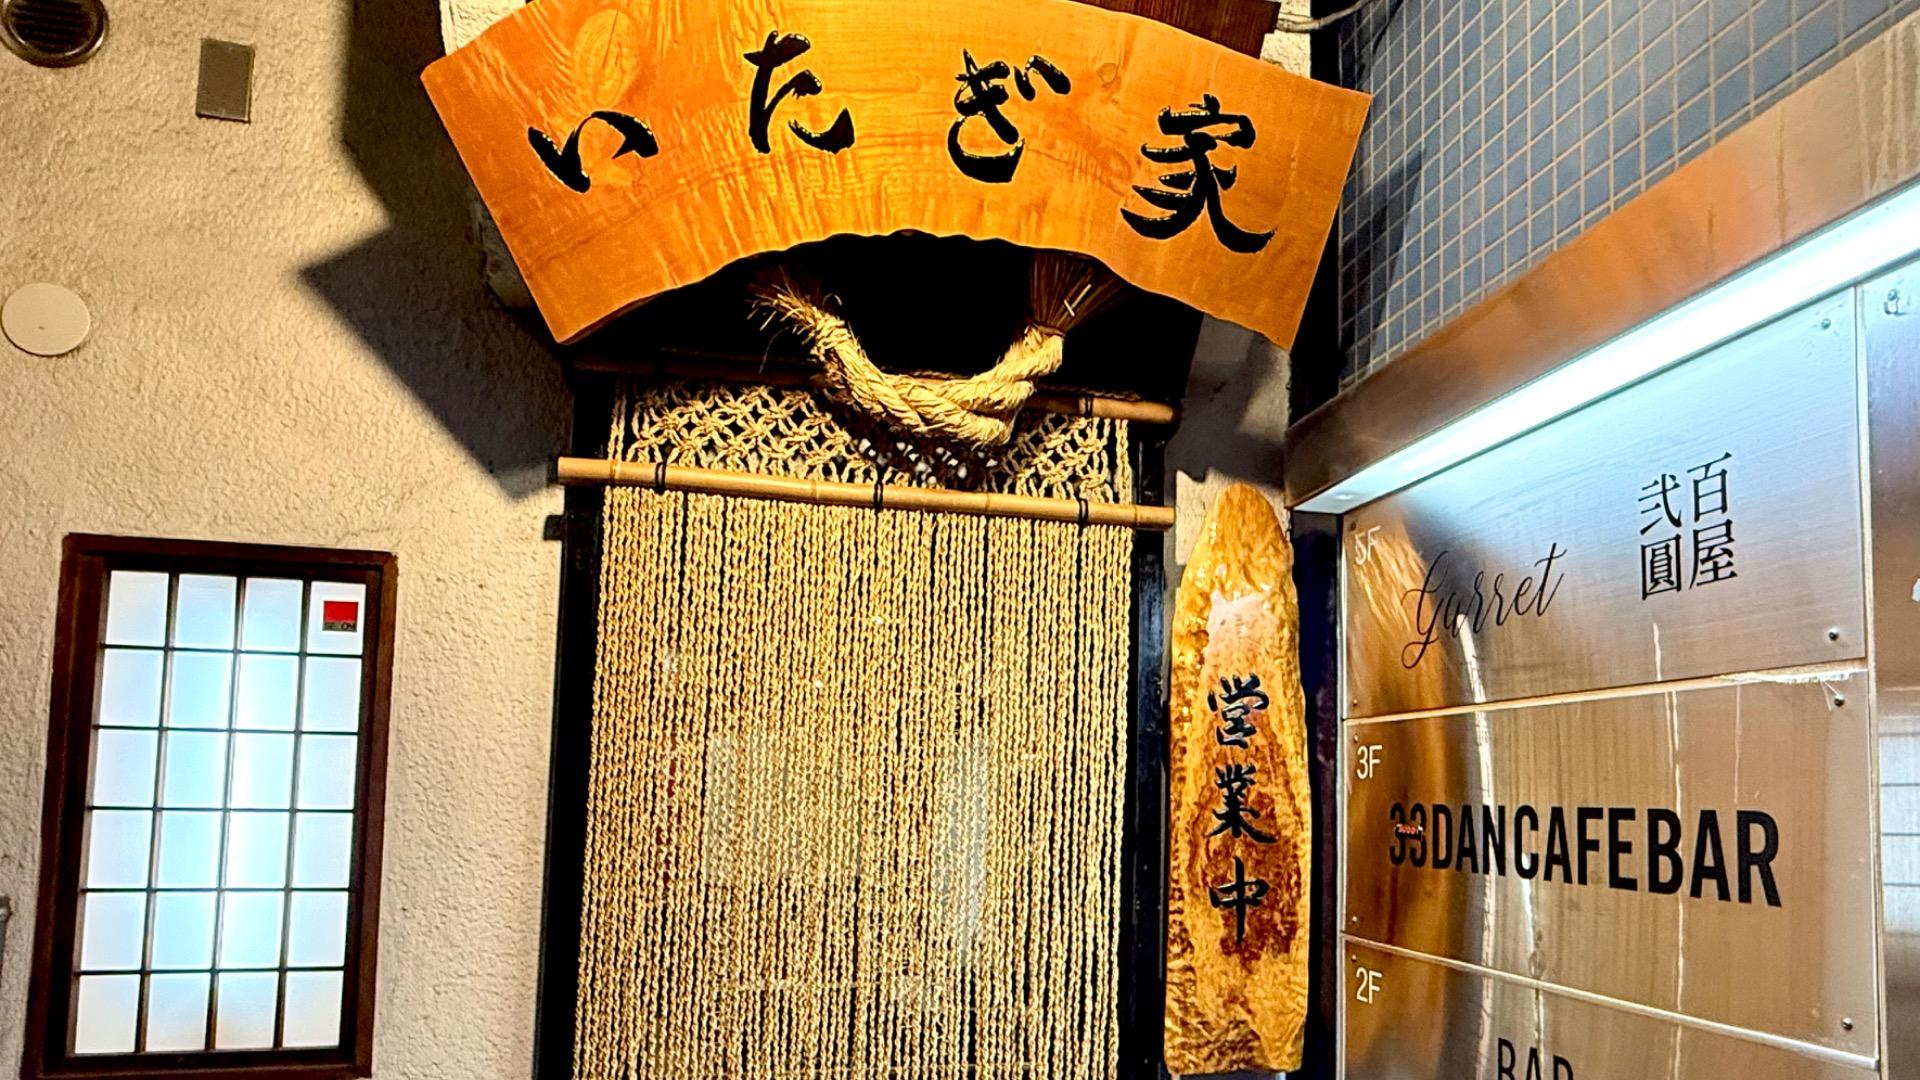 いたぎ家
営業中
SECOM
5F
Garret
百屋
弐圓
3F
33DANCAFEBAR
2F
BAR